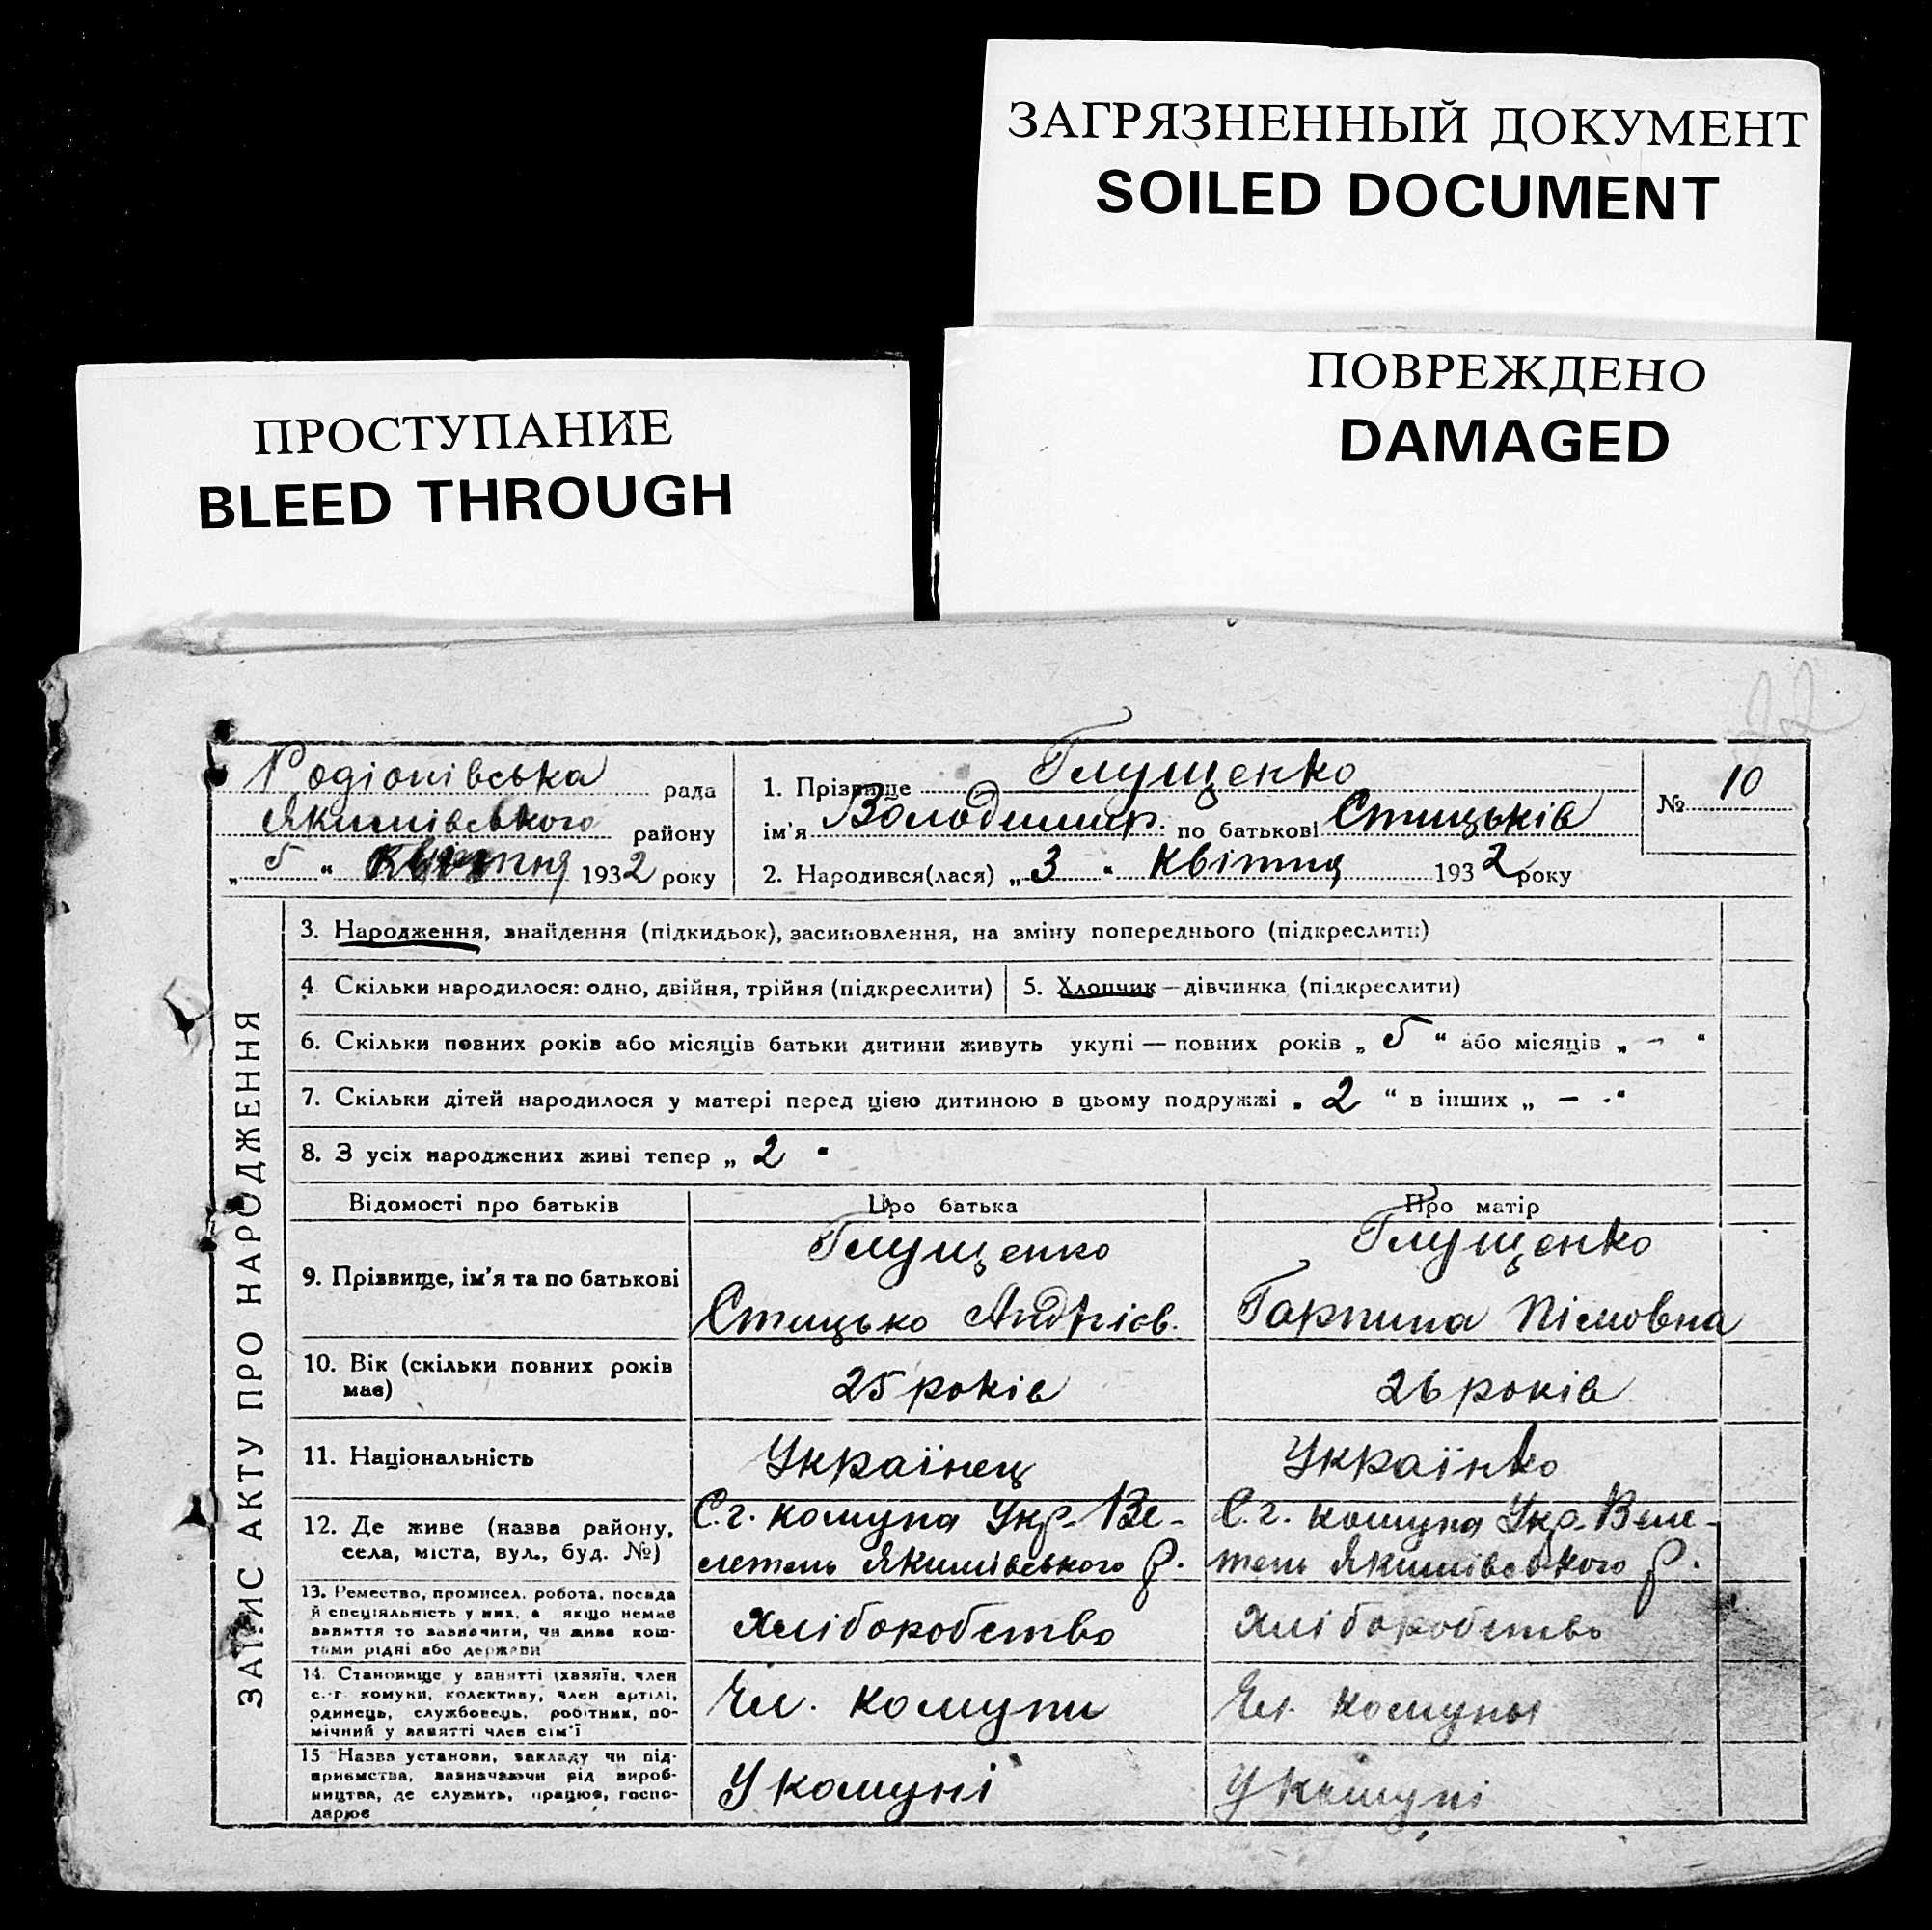 ЗАГРЯЗНЕННЫЙ ДОКУМЕНТ
SOILED DOCUMENT
ПОВРЕЖДЕНО
DAMAGED
ПРОСТУПАНИЕ
BLEED THROUGH
22
Родіонівська рада
Якимівського району
„ 5 “ Квітня 1932 року
1. Прізвище Глущенко
ім'я Володимир по батькові Стицьків
2. Народився(лася) „ 3 “ Квітня 1932 року
№ 10
ЗАПИС АКТУ ПРО НАРОДЖЕННЯ
3. Народження, знайдення (підкидьок), засиновлення, на зміну попереднього (підкреслити)
4 Скільки народилося: одно, двійня, трійня (підкреслити)
5. Хлопчик — дівчинка (підкреслити)
6. Скільки повних років або місяців батьки дитини живуть укупі — повних років „ 5 “ або місяців „ - “
7. Скільки дітей народилося у матері перед цією дитиною в цьому подружжі „ 2 “ в інших „ — “
8. З усіх народжених живі тепер „ 2 “
Відомості про батьків
Про батька
Про матір
9. Прізвище, ім'я та по батькові
Глущенко
Стицько Андрієв.
Глущенко
Гарпина Пімовна
10. Вік (скільки повних років
має)
25 років
26 років
11. Національність
Українец
Українко
12. Де живе (назва району,
села, міста, вул., буд. №)
С.г. комуна Укр. Ве-
летень Якимівського р.
С.г. комуна Укр. Веле-
тень Якимівського р.
13. Ремество, промисел, робота, посада
й спеціяльність у них, а якщо немає
заняття то зазначити, чи живе кош-
тами рідні або держави
Хліборобство
Хліборобство
14. Становище у занятті (хазяїн, член
с.-г. комуни, колективу, член артілі,
одинець, службовець, робітник, по-
мічний у занятті член сім'ї
Чл. комуни
Чл. комуны
15 Назва установи, закладу чи під-
приємства, зазначаючи рід вироб-
ництва, де служить, працює, госпо-
дарює
У комуні
У комуні